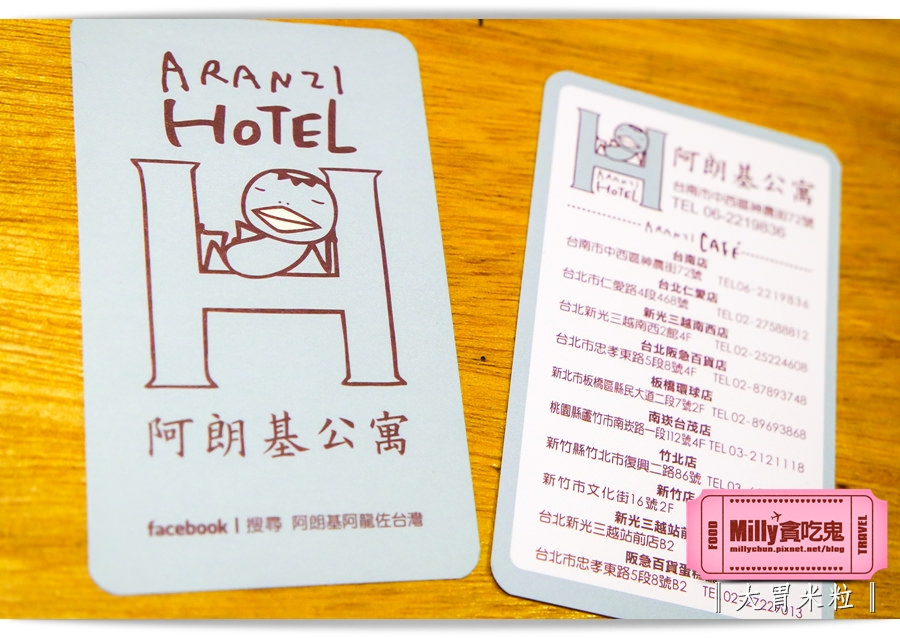 ARANZI
HOTEL
阿朗基公寓
facebook | 搜尋 阿朗基阿龍佐台灣
ARANZI
HOTEL
阿朗基公寓
台南市中西區神農街72號
TEL 06-2219836
ARANZI CAFÉ
台南店
台南市中西區神農街72號 TEL06-2219836
台北仁愛店
台北市仁愛路4段468號 TEL02-27588812
新光三越南西店
台北新光三越南西2館4F TEL02-25224608
台北阪急百貨店
台北市忠孝東路5段8號4F TEL02-87893748
板橋環球店
新北市板橋區縣民大道二段7號2F TEL02-89693868
南崁台茂店
桃園縣蘆竹市南崁路一段112號4F TEL03-2121118
竹北店
新竹縣竹北市復興二路86號 TEL03
新竹店
新竹市文化街16號2F
新光三越站前
台北新光三越站前店B2
阪急百貨
台北市忠孝東路5段8號B2 TEL
FOOD
Milly貪吃鬼
millychun.pixnet.net/blog
TRAVEL
║大胃米粒║